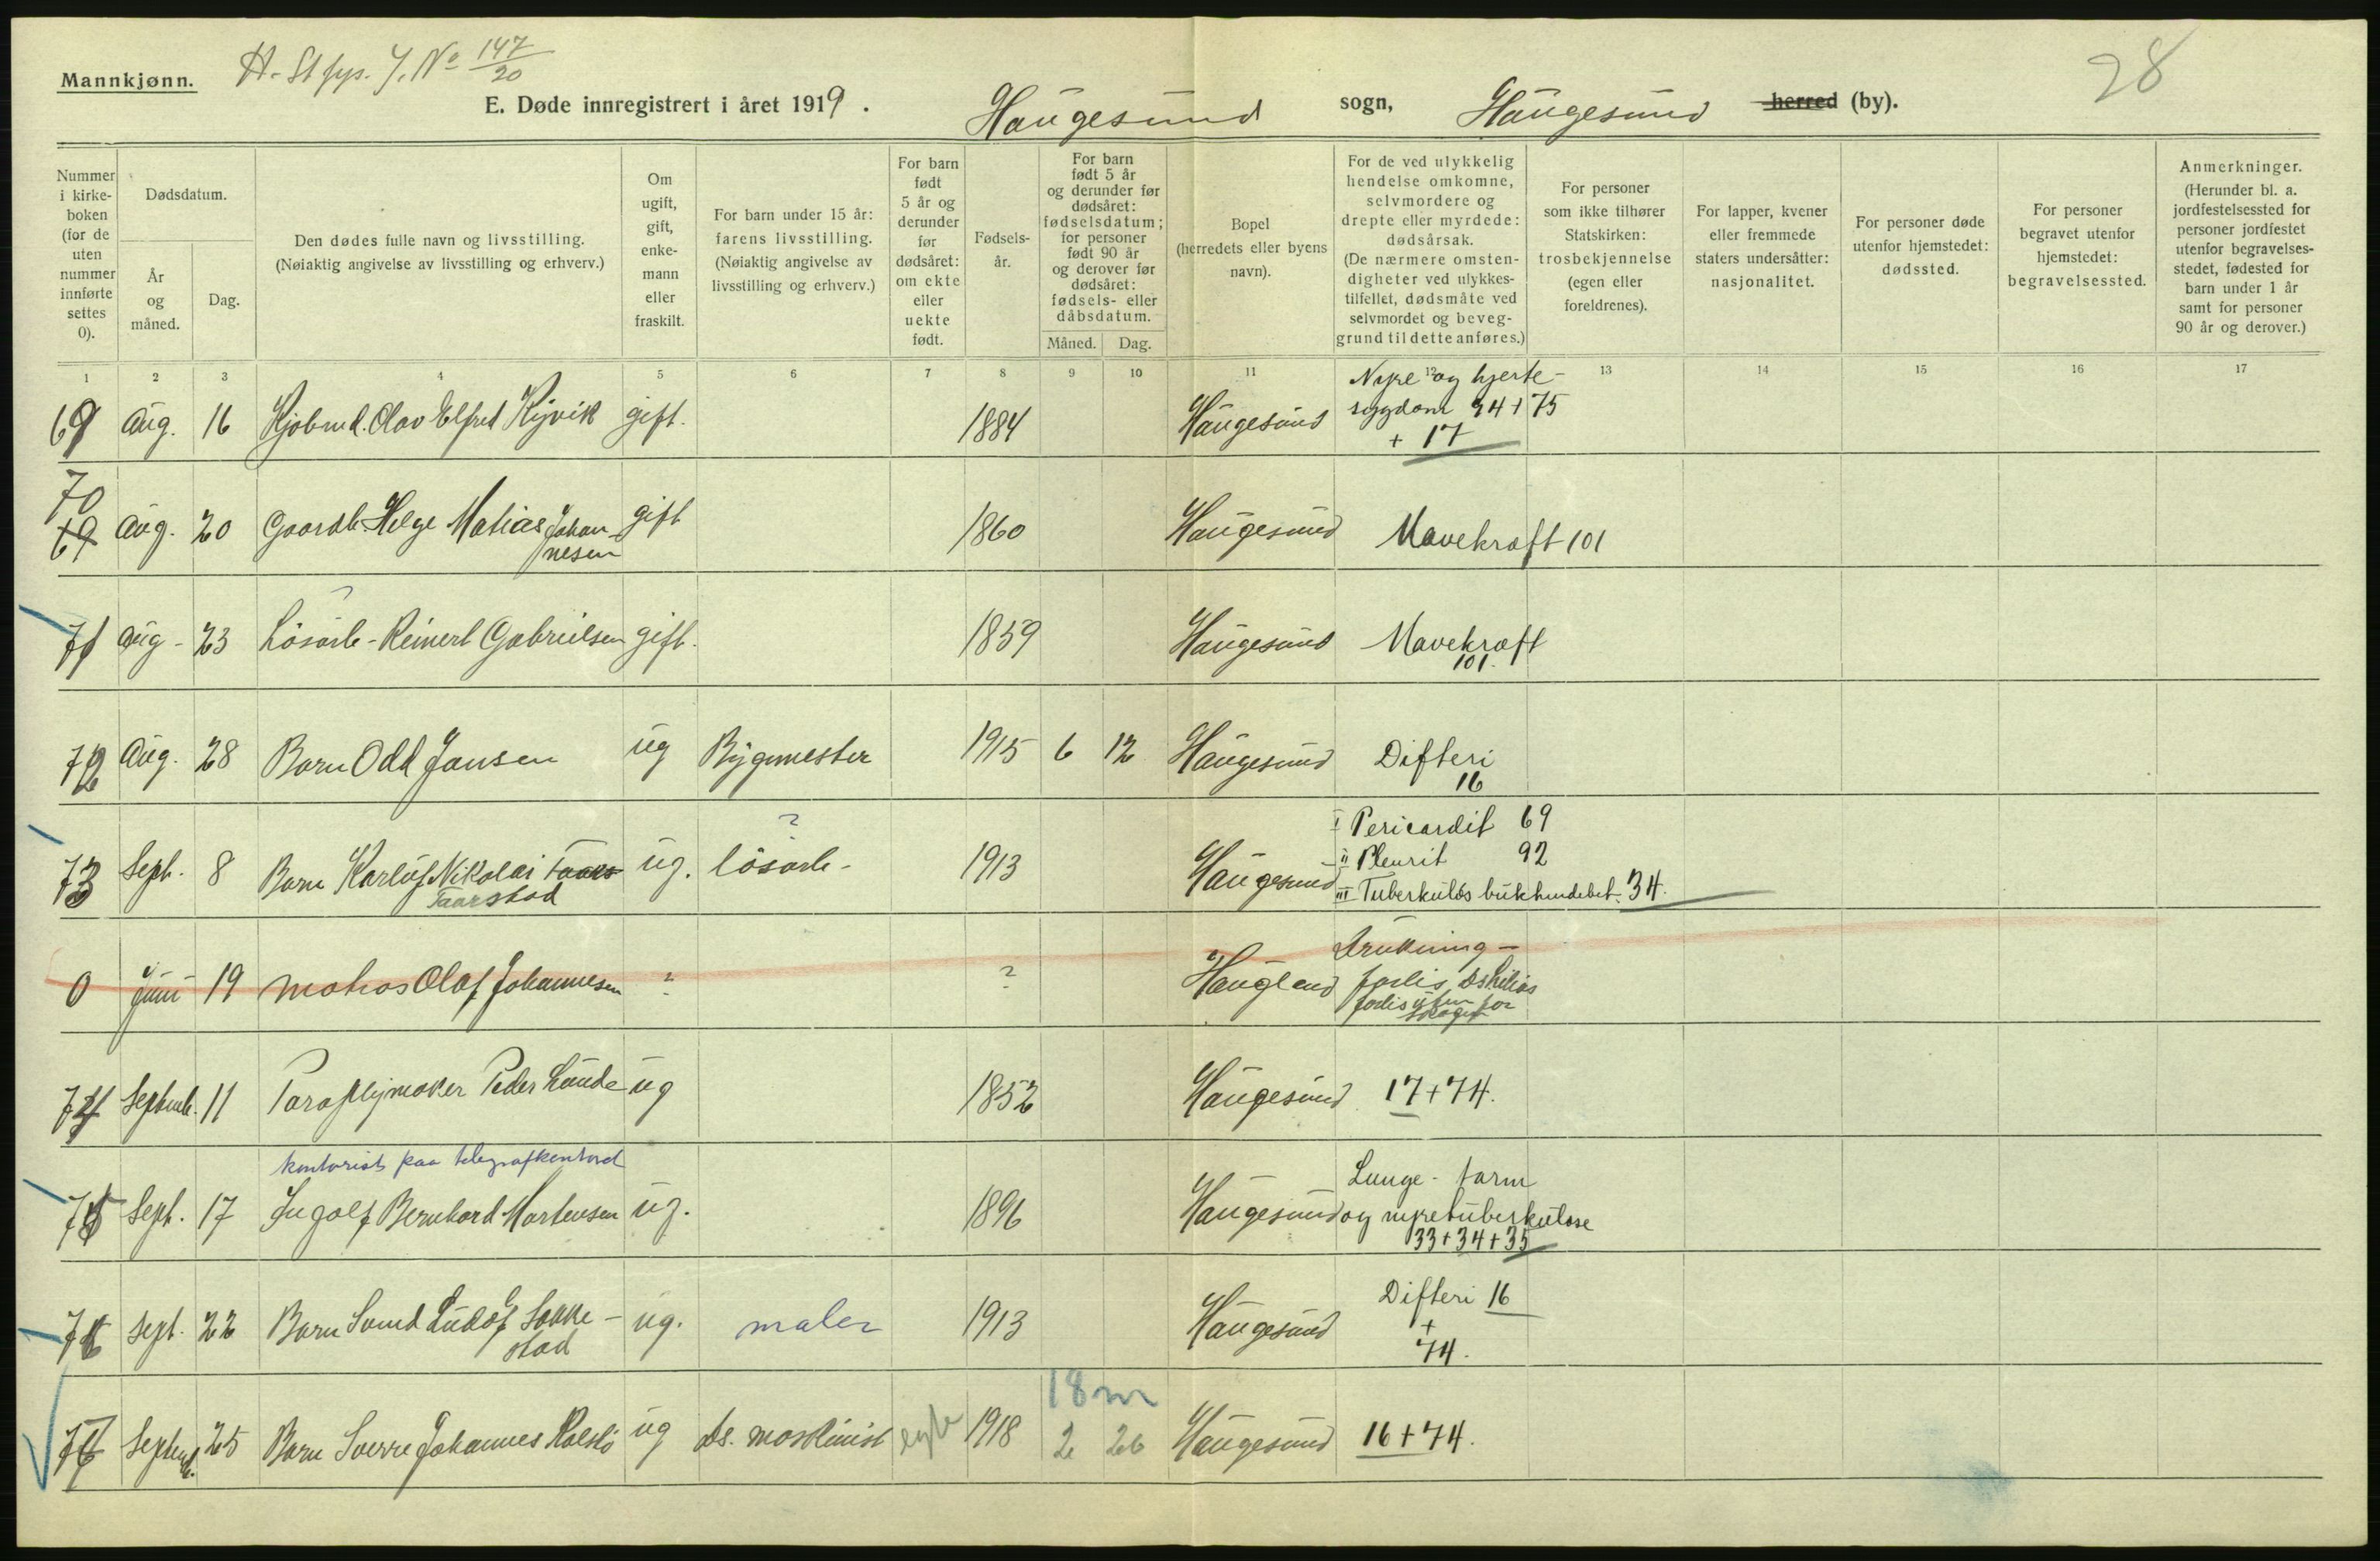 Mannkjønn.
H. St fys. J. No 147/20
28
E. Døde innregistrert i året 1919. Haugesund sogn, Haugesund herred (by).
Nummer i kirkeboken (for de uten nummer innførte settes 0).
Dødsdatum.
År og måned.
Dag.
Den dødes fulle navn og livsstilling. (Nøiaktig angivelse av livsstilling og erhverv.)
Om ugift, gift, enkemann eller fraskilt.
For barn under 15 år: farens livsstilling. (Nøiaktig angivelse av livsstilling og erhverv.)
For barn født 5 år og derunder før dødsåret: om ekte eller uekte født.
Fødselsår.
For barn født 5 år og derunder før dødsåret: fødselsdatum; for personer født 90 år og derover før dødsåret: fødsels- eller dåbsdatum.
Måned. Dag.
Bopel (herredets eller byens navn).
For de ved ulykkelig hendelse omkomne, selvmordere og drepte eller myrdede: dødsårsak. (De nærmere omstendigheter ved ulykkestilfellet, dødsmåte ved selvmordet og beveggrund til dette anføres.)
For personer som ikke tilhører Statskirken: trosbekjennelse (egen eller foreldrenes).
For lapper, kvener eller fremmede staters undersåtter: nasjonalitet.
For personer døde utenfor hjemstedet: dødssted.
For personer begravet utenfor hjemstedet: begravelsessted.
Anmerkninger. (Herunder bl. a. jordfestelsessted for personer jordfestet utenfor begravelsesstedet, fødested for barn under 1 år samt for personer 90 år og derover.)
1 2 3 4 5 6 7 8 9 10 11 12 13 14 15 16 17
69 Aug. 16 Kjøbmd. Olav Elfred Kyvik gift. 1884 Haugesund Nyre og hjertesygdom 34+75 + 17
70 69 Aug. 20 Gaardb. Helge Matias Johannesen gift 1860 Haugesund Mavekræft 101
71 Aug - 23 Løsarb - Reinert Gabrielsen gift. 1859 Haugesund Mavekræft 101.
72 Aug. 28 Barn Odd Jansen ug Bygmester 1915 6 12 Haugesund Difteri 16
73 Sept. 8 Barn Karluf Nikolai Taarstad ug. løsarb - ? 1913 Haugesund I Pericardit 69
II Pleurit 92
III Tuberkuløs bukhindebet. 34.
0 Juni 19 matros Olaf Johannesen ? ? Haugland Drukning - forlis
74 Septemb. 11 Paraplymaker Peder Lunde ug 1852 Haugesund 17+74.
kontorist paa telegrafkontord
75 Sept. 17 Ingolf Bernhard Mortensen ug. 1896 Haugesund Lunge - tarm og nyretuberkulose 33+34+35
76 Sept. 22 Barn Ludolf Sokkestad ug. maler 1913 Haugesund Difteri 16 + 74.
18 m
77 Septemb. 25 Barn Sverre Johannes ug ds. maskinist egte 1918 2 26 Haugesund 16+74.